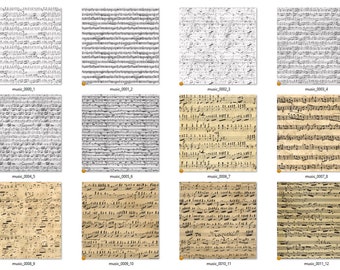 music_0000_1 music_0001_2 music_0002_3 music_0003_4
music_0004_5 music_0005_6 music_0006_7 music_0007_8
music_0008_9 music_0009_10 music_0010_11 music_0011_12